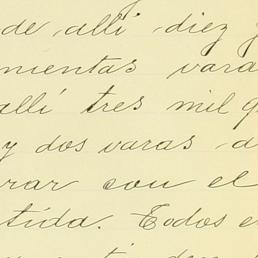 de allí diez y
mientas varas
allí tres mil q
y dos varas d
rar con el
tida. Todos e